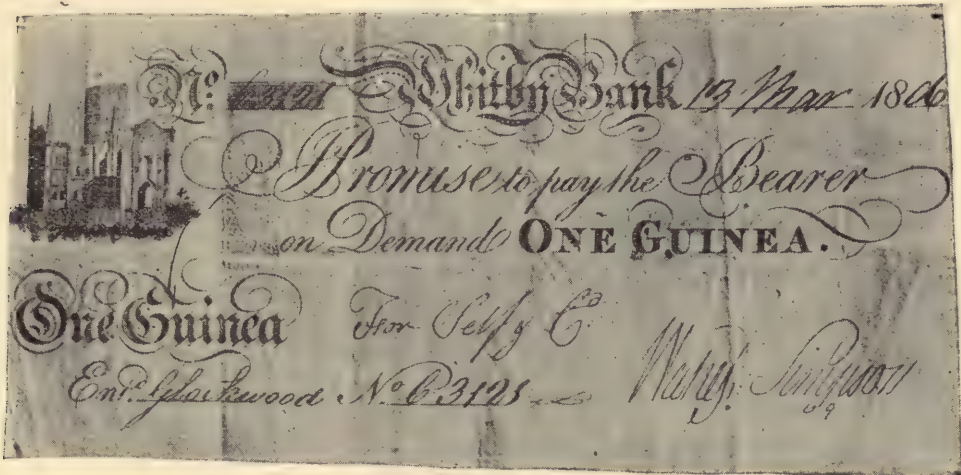 No. 63121 Whitby Bank 13 Mar 1806
I Promise to pay the Bearer
on Demand ONE GUINEA.
One Guinea For Self & Co
Entd. No 63121 Simpson